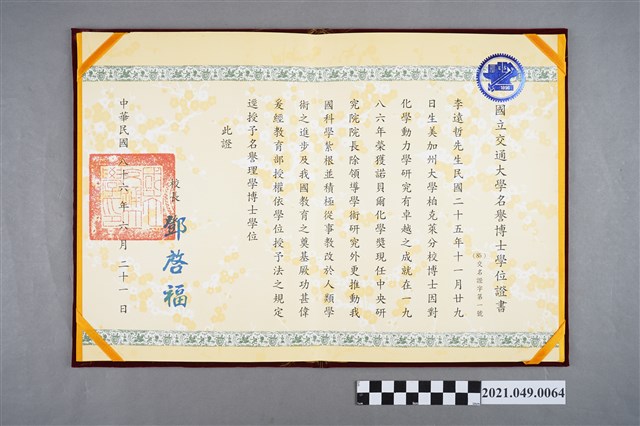 國立交通大學名譽博士學位證書
李遠哲先生民國二十五年十一月廿九
日生美加州大學柏克萊分校博士因對
化學動力學研究有卓越之成就在一九
八六年榮獲諾貝爾化學獎現任中央研
究院院長除領導學術研究外更推動我
國科學紮根並積極從事教改於人類學
術之進步及我國教育之奠基厥功甚偉
爰經教育部授權依學位授予法之規定
逕授予名譽理學博士學位
此證
校長 鄧啓福
中華民國八十六年六月二十一日
2021.049.0064